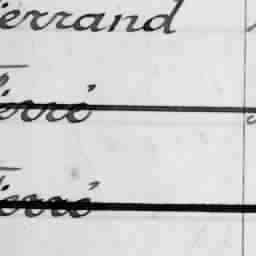 ierrand
ierré
ierré